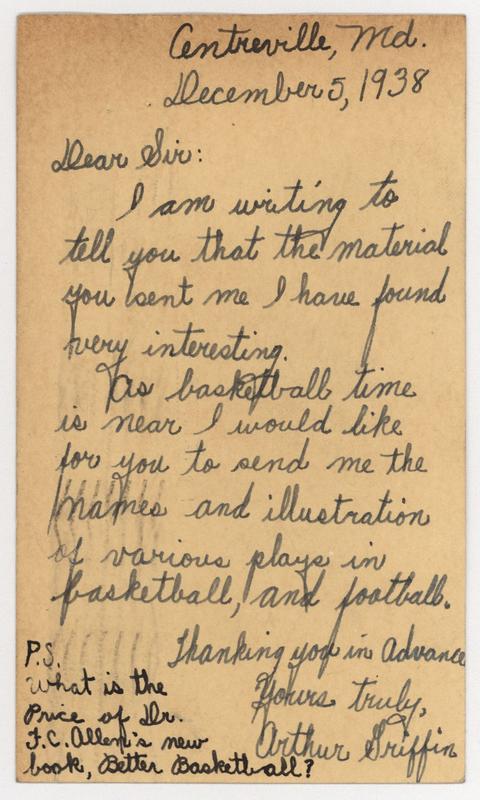 Centreville, Md.
December 5, 1938
Dear Sir:
I am writing to
tell you that the material
you sent me I have found
very interesting.
As basketball time
is near I would like
for you to send me the
names and illustration
of various plays in
basketball, and football.
Thanking you in Advance
Yours truly,
Arthur Griffin
P.S.
What is the
Price of Dr.
F.C. Allen's new
book, Better Basketball?